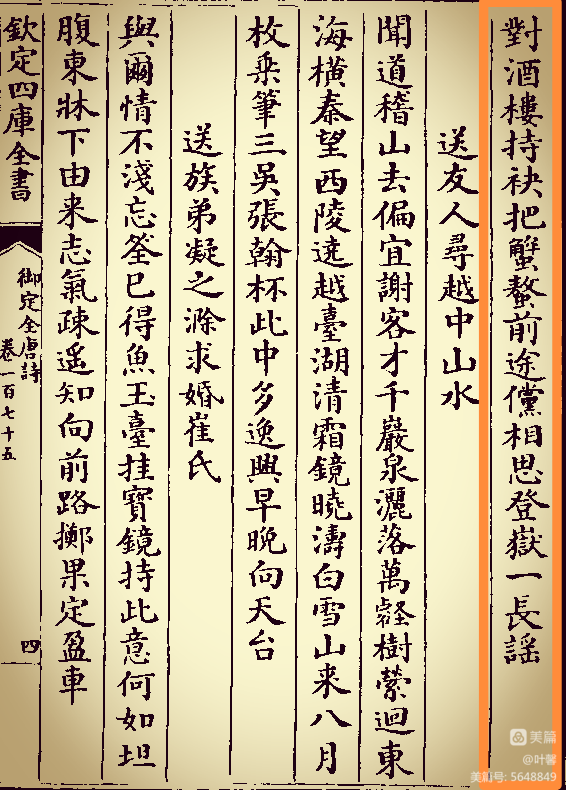 對酒樓持袂把蟹螯前途儻相思登嶽一長謡
送友人尋越中山水
聞道稽山去偏宜謝客才千巖泉灑落萬壑樹縈迴東
海橫秦望西陵遶越臺湖清霜鏡曉濤白雪山来八月
枚乗筆三吳張翰杯此中多逸興早晚向天台
送族弟凝之滁求婚崔氏
與爾情不淺忘筌已得魚玉臺挂寶鏡持此意何如坦
腹東牀下由来志氣疎遥知向前路擲果定盈車
欽定四庫全書
御定全唐詩
卷一百七十五
四
美篇
@叶馨
美篇号: 5648849